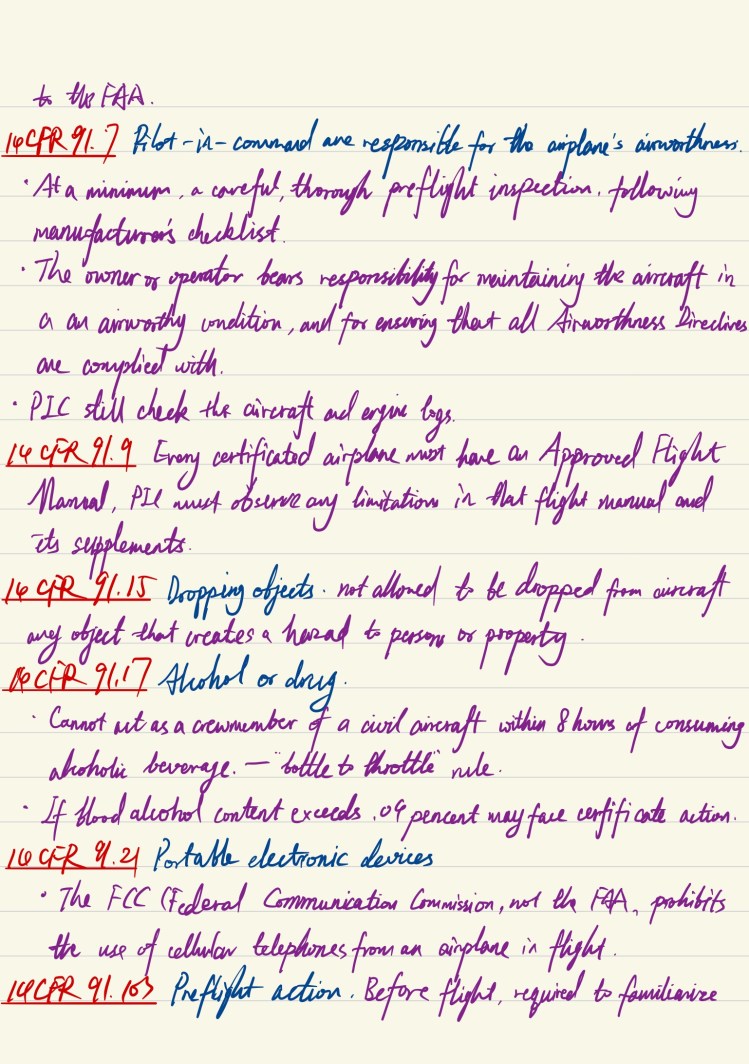 to the FAA.
14 CFR 91.7 Pilot-in-command are responsible for the airplane's airworthness.
· At a minimum, a careful, thorough preflight inspection, following
manufacturer's checklist.
· The owner or operator bears responsibility for maintaining the aircraft in
a an airworthy condition, and for ensuring that all Airworthness Directives
are complied with.
· PIC still check the aircraft and engine logs.
14 CFR 91.9 Every certificated airplane must have an Approved Flight
Manual, PIC must observe any limitations in that flight manual and
its supplements.
14 CFR 91.15 Dropping objects. not allowed to be dropped from aircraft
any object that creates a hazad to person or property.
14 CFR 91.17 Alcohol or drug.
· Cannot act as a crewmember of a civil aircraft within 8 hours of consuming
alcoholic beverage. — "bottle to throttle" rule.
· If blood alcohol content exceeds .04 percent may face certificate action.
14 CFR 91.21 Portable electronic devices
· The FCC (Federal Communication Commission, not the FAA, prohibits
the use of cellular telephones from an airplane in flight.
14 CFR 91.103 Preflight action. Before flight, required to familiarize